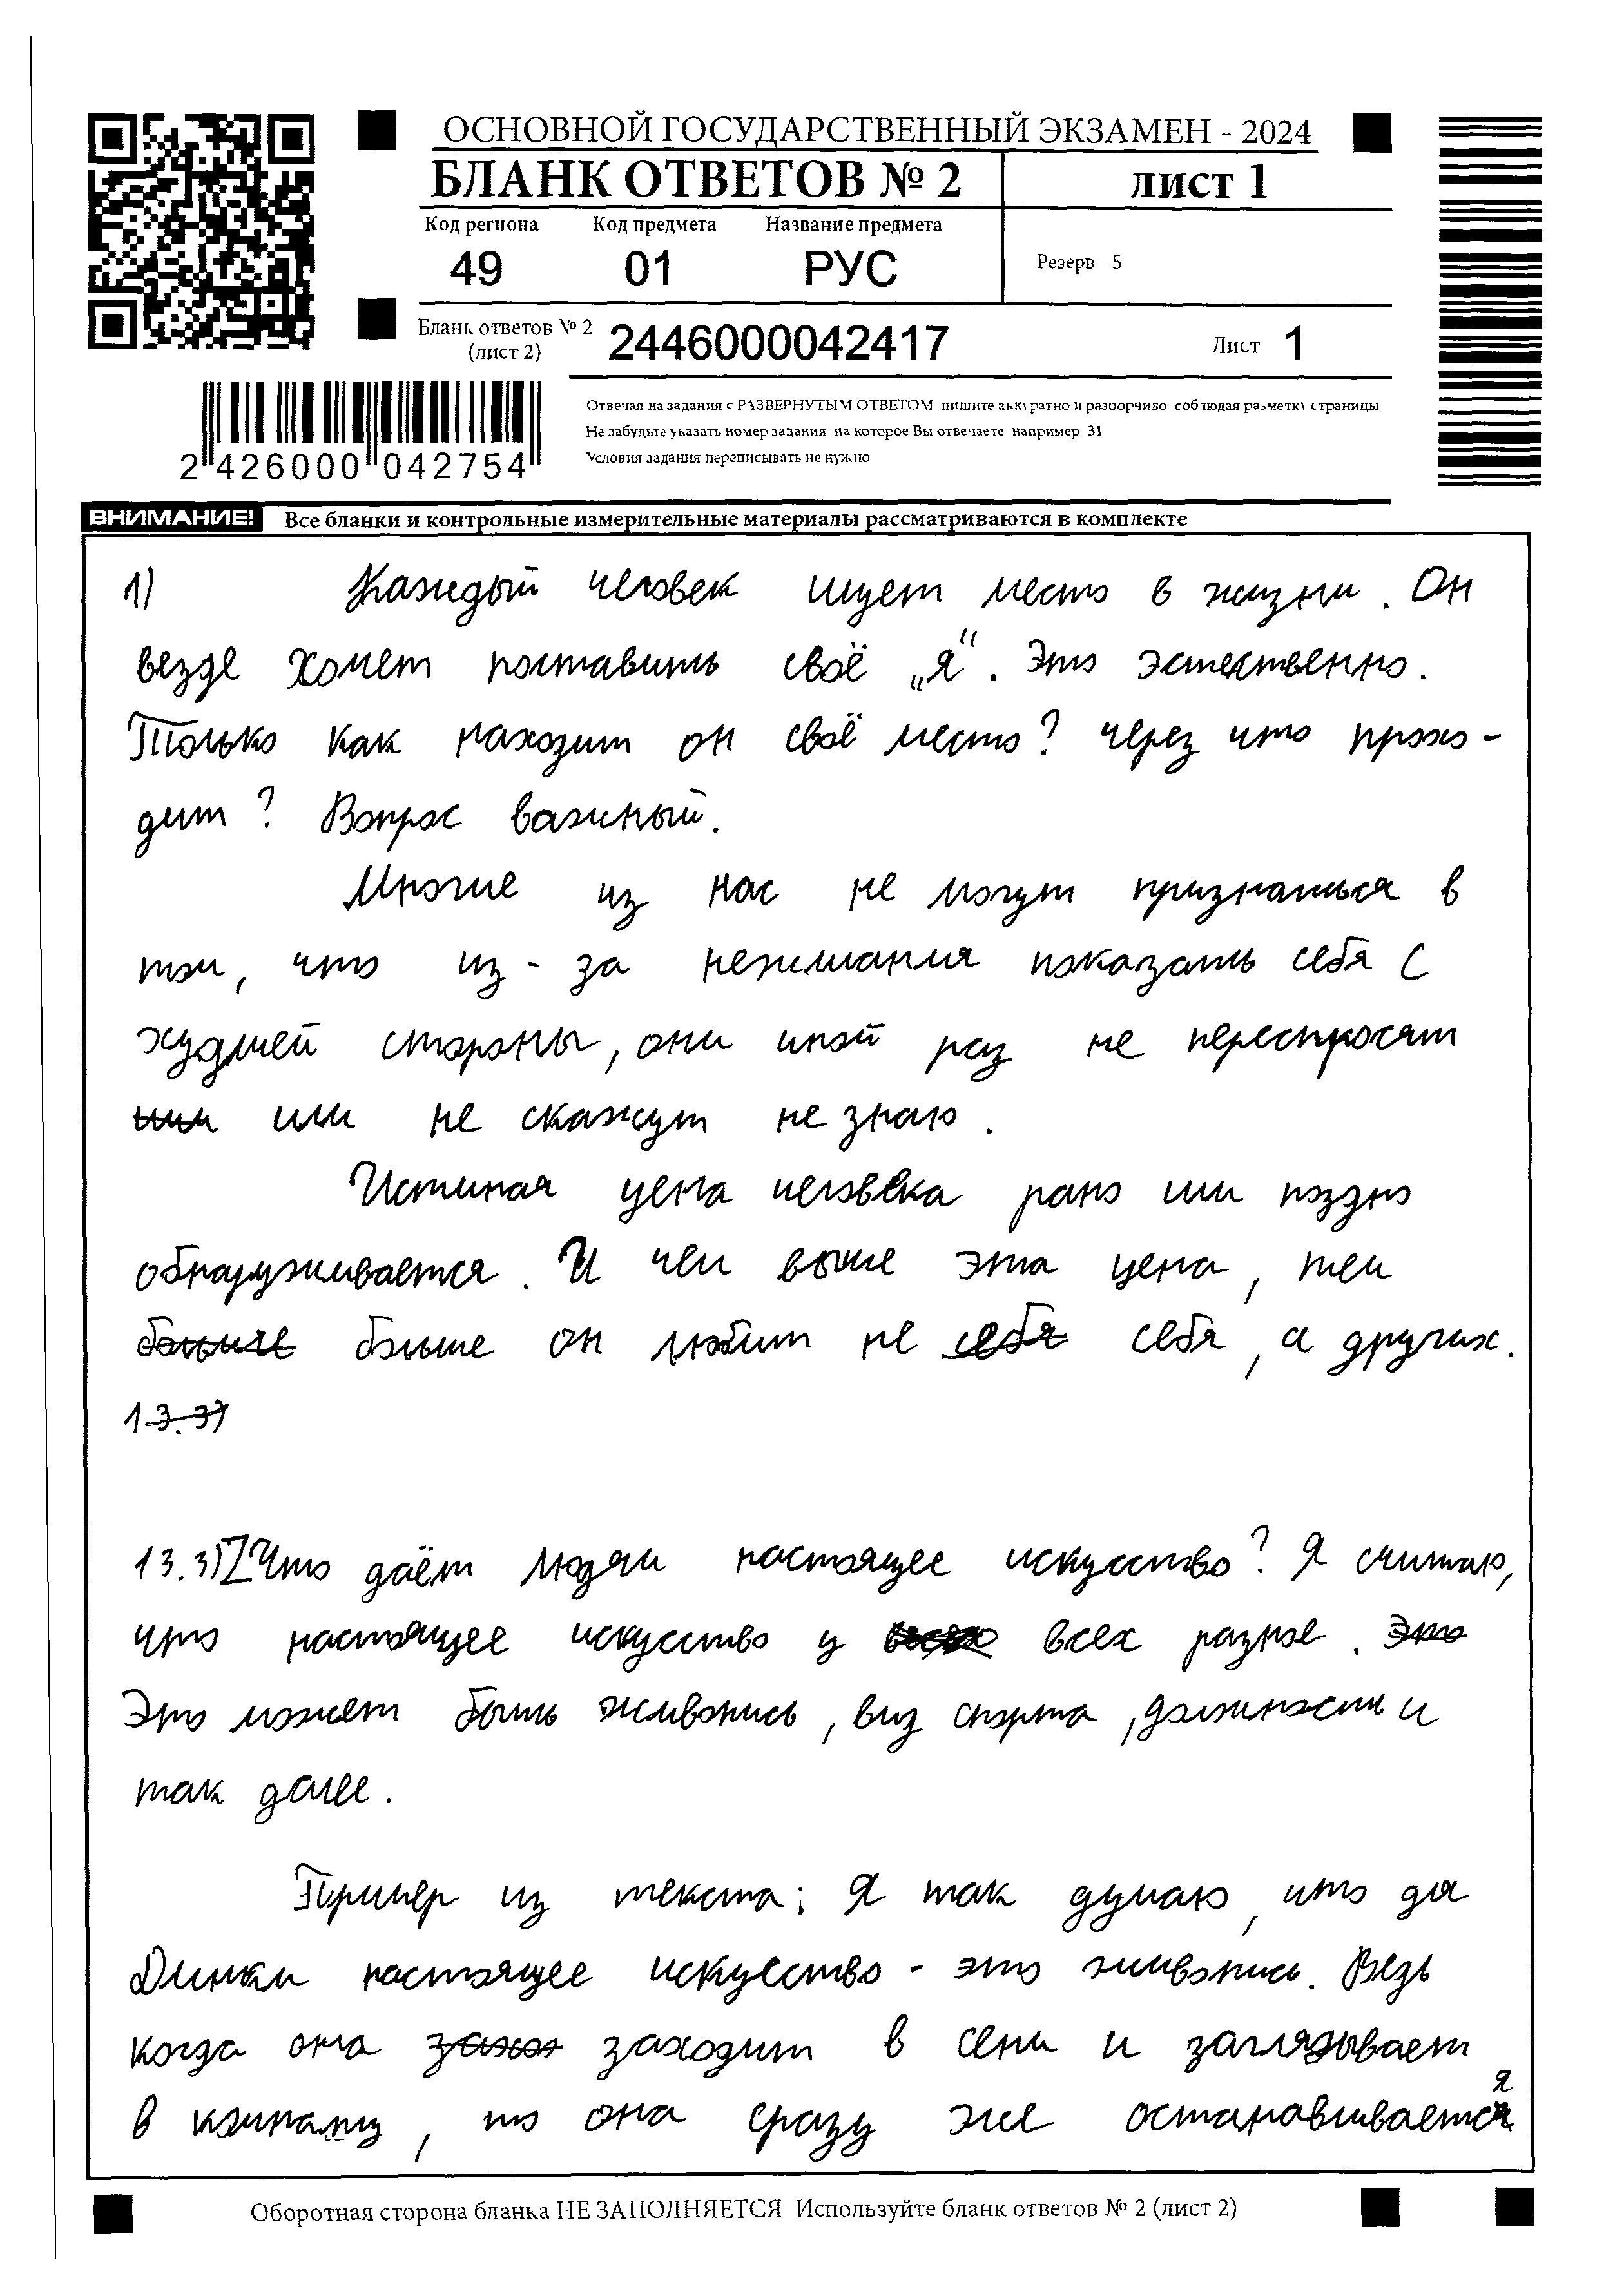 ОСНОВНОЙ ГОСУДАРСТВЕННЫЙ ЭКЗАМЕН - 2024
БЛАНК ОТВЕТОВ № 2 лист 1
Код региона Код предмета Название предмета
49 01 РУС
Резерв 5
Бланк ответов № 2 (лист 2) 2446000042417 Лист 1
Отвечая на задания с РАЗВЕРНУТЫМ ОТВЕТОМ пишите аккуратно и разборчиво соблюдая разметку страницы
Не забудьте указать номер задания на которое Вы отвечаете например 31
Условия задания переписывать не нужно
2 426000 042754
ВНИМАНИЕ! Все бланки и контрольные измерительные материалы рассматриваются в комплекте
1) Каждый человек ищет место в жизни. Он
везде хочет поставить своё „я“. Это эстественно.
Только как находит он своё место? через что прохо-
дит? Вопрос важный.
Многие из нас не могут признаться в
том, что из-за нежелания показать себя с
худшей стороны, они иной раз не переспросят
или или не скажут не знаю.
Истиная цена человека рано или поздно
обнаруживается. И чем выше эта цена, тем
больше больше он любит не себя себя, а других.
13.3)
13.3) Что даёт людям настоящее искусство? Я считаю,
что настоящее искусство у всех разное. Это
Это может быть живопись, виз спорта, должности и
так далее.
Пример из текста: Я так думаю, что дя
Динки настоящее искусство - это живопись. Ведь
когда она захо заходит в сени и заглядывает
в комнату, то она сразу же останавливается
Оборотная сторона бланка НЕ ЗАПОЛНЯЕТСЯ Используйте бланк ответов № 2 (лист 2)